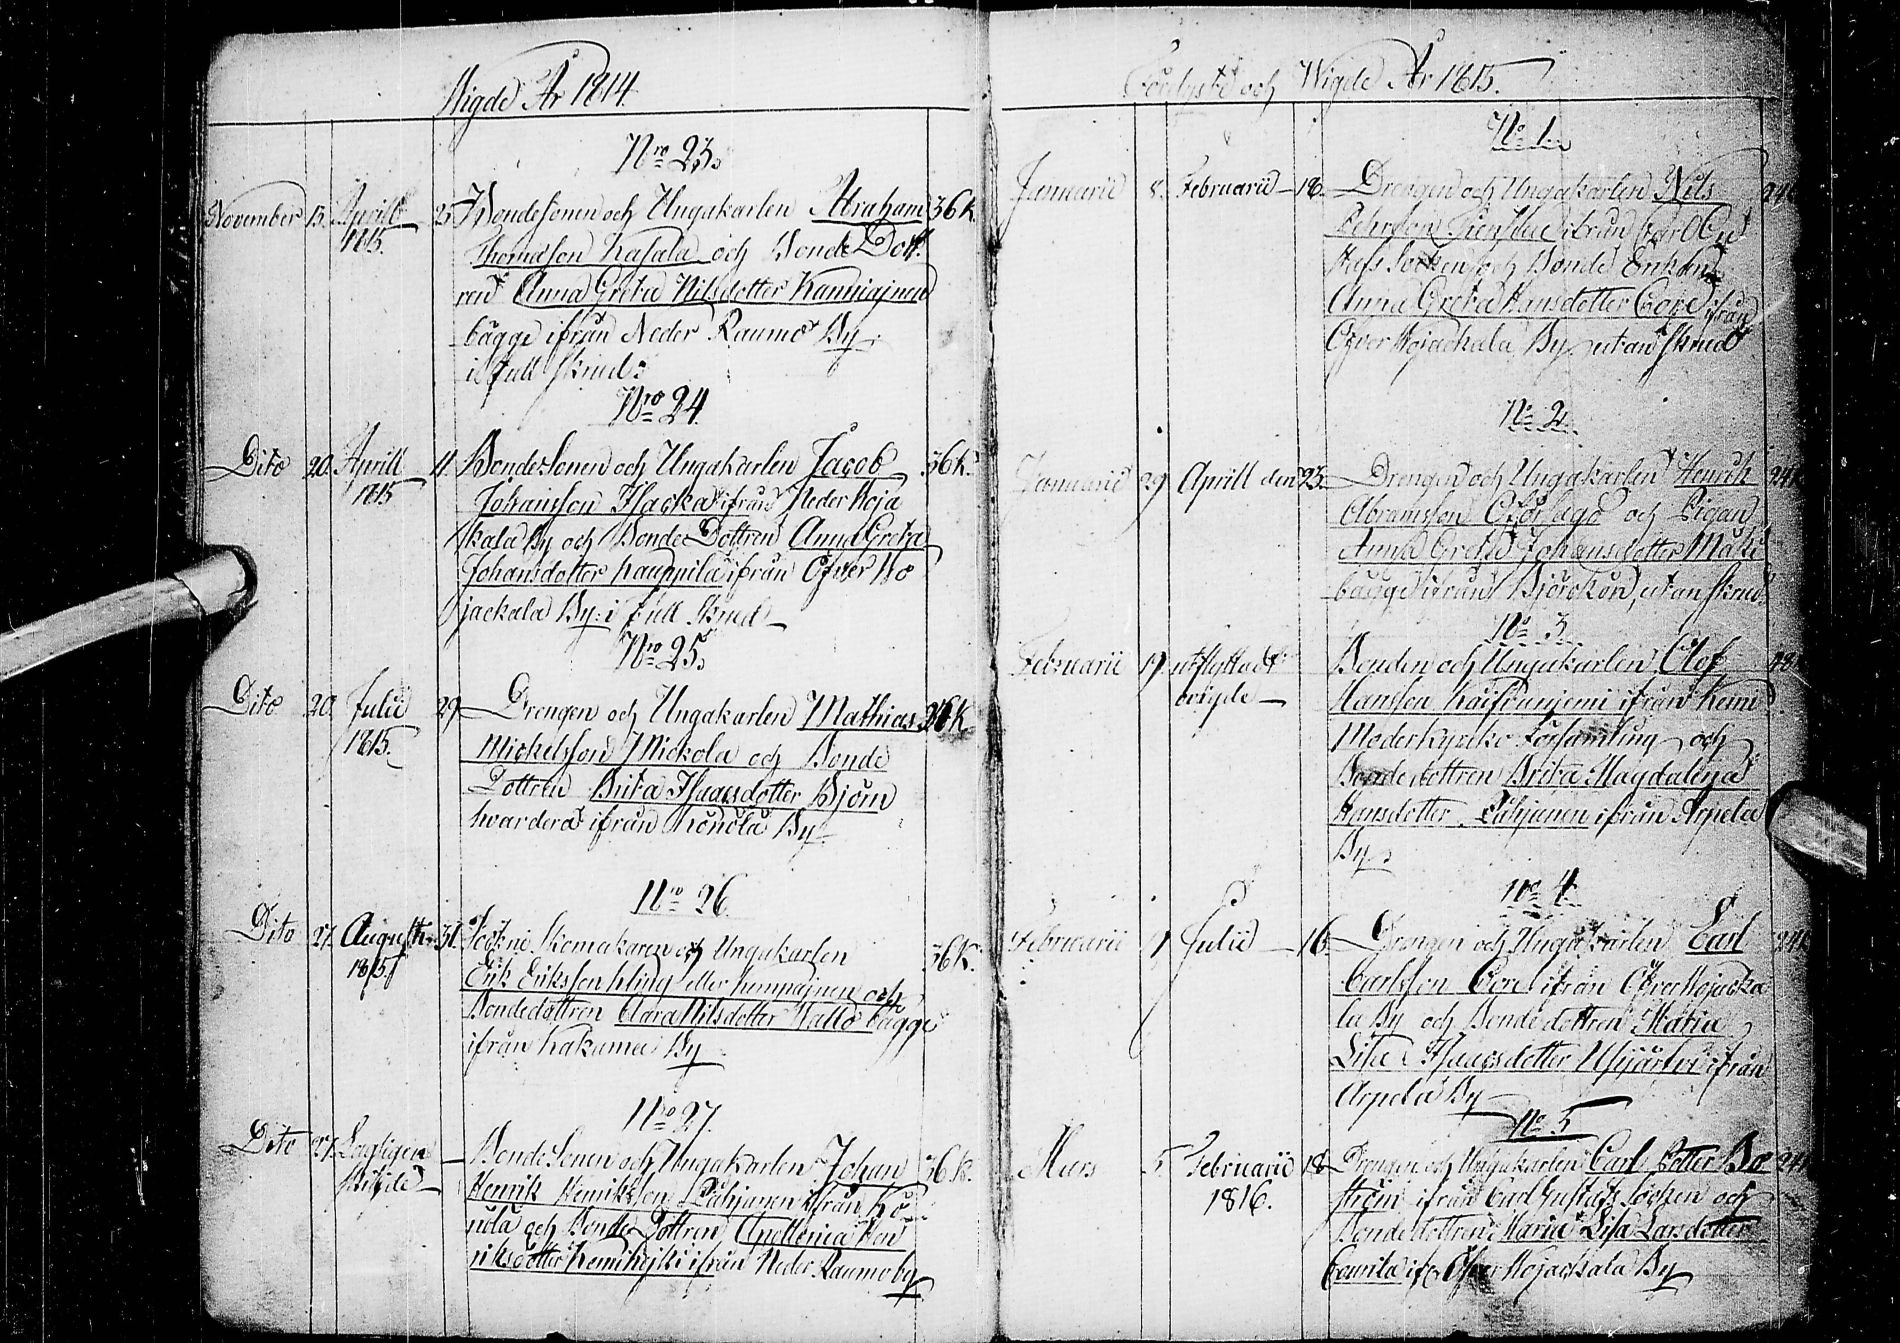 Wigde År 1814.
Nro 23.
November 13. Aprill 1815. 23 Bondesonen och Ungakarlen Abraham 36 K.
Thomasson Kasala och Bonde Dott
ren Anna Greta Nilsdotter Kanniajnen
bägge ifrån Neder Raumo By
i full skrud.
Nro 24.
Dito 20. Aprill 1815 11. BondeSonen och Ungakarlen Jacob 36 K.
Johansson Hacka ifrån Neder Woja
kala By och Bonde Dottren Anna Greta
Johansdotter Kauppila ifrån Öfver Wo
jackala By: i full skrud
Nro 25.
Dito 20. Julii 1815. 29 Drengen och Ungakarlen Mathias 36 K
Michelsson Mickola och Bonde
Dottren Brita Isaacsdotter Björn
hvardera ifrån Könölä By.
Nro 26
Dito 27. August. 1815 31. Sockne skomakaren och Ungakarlen 36 K.
Erik Eriksson Kling eller Kumpajnen och
Bondedottren Clara Nilsdotter Wallo bägge
ifrån Kakama By
Nro 27.
Dito 27. Lagligen Wigde BondeSonen och Ungakarlen Johan 36 K.
Henrik Henriksson Pähjänen ifrån Kö
nölä och Bonde Dottren Apollonia Hen
riksdotter Kemihejki ifrån Neder Raumo by
Lyste och Wigde År 1815.
No 1.
Januarii 8. Februarii 18. Drengen och Ungakarlen Nils 24
Pehrsson ifrån Carl
Socken och Bonde Enkan
Anna Greta Hansdotter Core ifrån
Öfver Wojackala By utan skrud
No 2.
Januarii 29 Aprill den 23. Drengen och Ungakarlen Henrik 24
Abramsson och Pigan
Anna Greta Johansdotter Maki
bägge ifrån Björckön, utan skrud.
No 3
Februarii 19 utflyttade wigde Bonden och Ungakarlen Olof 48
Hansson ifrån Kemi
Moderkyrko Församling och
Bondedottren Brita Magdalena
Hansdotter Pähjänen ifrån Arpela
By
No 4
Februarii 19 Julii 16. Drengen och Ungakarlen Carl 24 K
Carlsson Core ifrån Öfver Wojacka
la By och Bonde dottren Maria
Lisa Isaacsdotter ifrån
Arpela By
No 5
Mars 5 Februarii 1816. 18 Drengen och Ungakarlen Carl Petter Bo 24
ström ifrån Carl Gustafs Socken och
Bondedottren Maria Lisa Larsdotter
ifr. Öfver Wojackala By